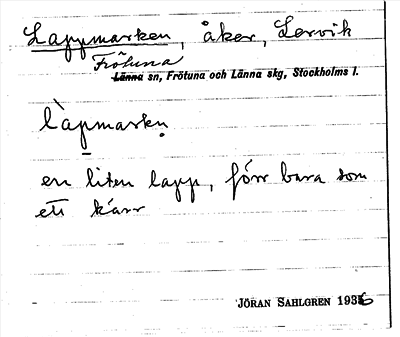 Lappmarken, åker, Lervik
Frötuna
Länna sn, Frötuna och Länna skg, Stockholms l.
làpmarkẹn
en liten lapp, förr bara som
ett kärr
JÖRAN SAHLGREN 1936